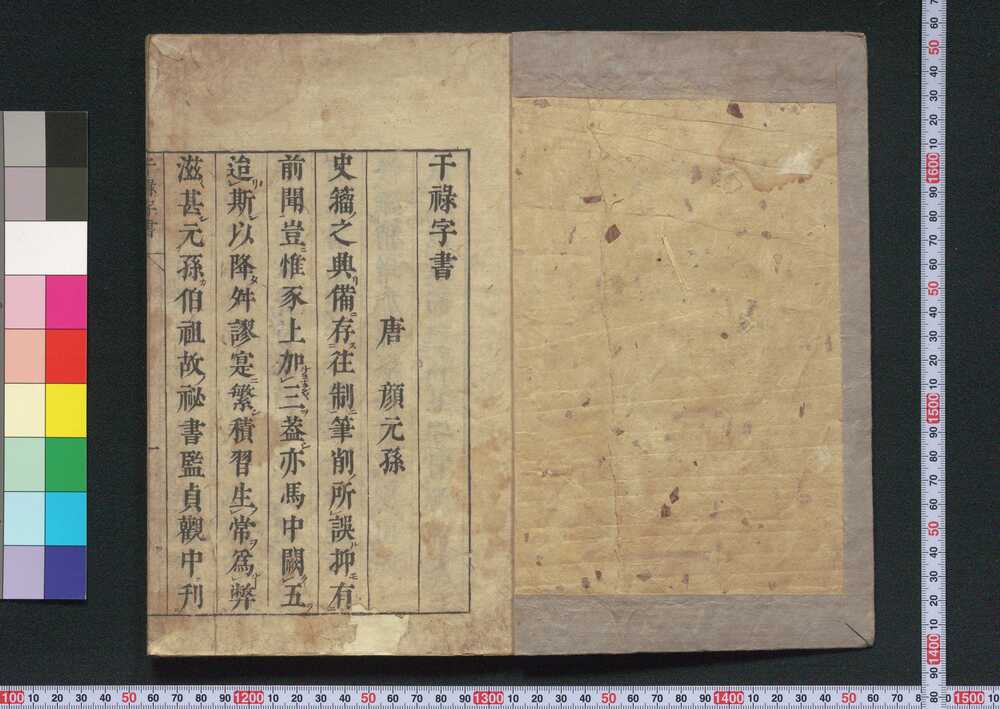 干祿字書
唐 顔元孫
史籀之典備存往制筆削所誤抑有
前聞豈惟豕上加三葢亦馬中闕五
迨斯以降舛謬寔繁積習生常爲弊
滋甚元孫伯祖故祕書監貞觀中刊
干祿字書 一